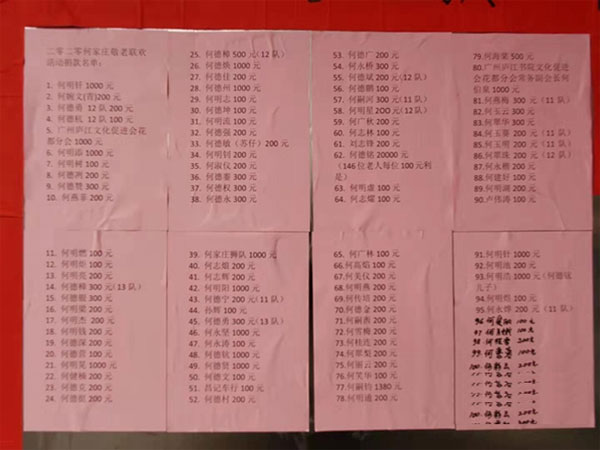 二零二零何家庄敬老联欢
活动捐款名单：
1. 何明轩 1000 元
2. 何婉文(青)200 元
3. 何德勇 12 队 200 元
4. 何德机 12 队 100 元
5. 广州庐江文化促进会花
都分会 1000 元
6. 何明添 1000 元
7. 何明树 100 元
8. 何德洲 200 元
9. 何德赞 300 元
10. 何燕菲 200 元
11. 何明燃 100 元
12. 何明炬 100 元
13. 何明亮 200 元
14. 何德樟 300 元(13 队)
15. 何德毅 300 元
16. 何明梁 200 元
17. 何明杰 200 元
18. 何明钱 200 元
19. 何德深 200 元
20. 何德营 100 元
21. 何明晃 1000 元
22. 何健楠 200 元
23. 何德克 200 元
24. 何德根 200 元
25. 何德棉 500 元(12 队)
26. 何德焕 1000 元
27. 何德佳 200 元
28. 何德州 1000 元
29. 何明志 100 元
30. 何德坤 100 元
31. 何明 100 元
32. 何德强 200 元
33. 何德敏（苏仔）200 元
34. 何明钊 200 元
35. 何淑仪 200 元
36. 何德鉴 300 元
37. 何德权 300 元
38. 何德永 300 元
39. 何家庄狮队 1000 元
40. 何志焰 200 元
41. 何志辉 200 元
42. 何明阳 300 元
43. 何德宁 200 元(11 队)
44. 孙辉 100 元
45. 何德勇 300 元(13 队)
46. 何永坚 1000 元
47. 何永涛 100 元
48. 何德钱 1000 元
49. 何德贤 1000 元
50. 何德文 100 元
51. 昌记车行 100 元
52. 何德村 200 元
53. 何德广 200 元
54. 何永桥 300 元
55. 何德斌 200 元(12 队)
56. 何德鹏 100 元
57. 何嗣河 300 元(11 队)
58. 何明星 200 元(12 队)
59. 何广秋 200 元
60. 何志林 100 元
61. 刘志锋 200 元
62. 何德铭 20000 元
(146 位老人每位 100 元利
是)
63. 何明虚 100 元
64. 何志耀 100 元
65. 何广林 100 元
66. 何高焰 100 元
67. 何美仪 200 元
68. 何明燕 200 元
69. 何传培 200 元
70. 何德全 200 元
71. 何嗣森 200 元
72. 何雪梅 200 元
73. 何桂连 200 元
74. 何翠梨 200 元
75. 何丽云 200 元
76. 何笑华 100 元
77. 何嗣钧 1380 元
78. 何明通 200 元
79. 何海棠 500 元
80. 广州庐江书院文化促进
会花都分会常务副会长何
伯泉 1000 元
81. 何燕梅 300 元（11 队）
82. 何玉云 300 元
83. 何翠华 300 元
84. 何玉葵 200 元（11 队）
85. 何玉明 200 元（11 队）
86. 何翠珠 200 元（12 队）
87. 何永根 200 元
88. 何建好 100 元
89. 何明湖 200 元
90. 卢伟涛 100 元
91. 何明针 1000 元
92. 何明池 200 元
93. 何明浩 1000 元(何德远
儿子)
94. 何明煜 100 元
95. 何永烽 200 元（11 队）
96. 何 100 元
97. 何 100 元
98. 何 200 元
99. 何 100 元
100. 200 元